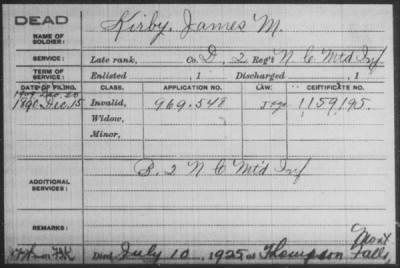 DEAD
NAME OF SOLDIER: Kirby, James M.
SERVICE: Late rank, Co. D, 2 Reg't N C Mtd Inf
TERM OF SERVICE: Enlisted , 1 Discharged , 1
DATE OF FILING. CLASS. APPLICATION NO. LAW. CERTIFICATE NO.
1890 Dec. 15 Invalid, 969.548 1159195.
Widow,
Minor,
ADDITIONAL SERVICES: B. 2 N C Mt'd Inf
REMARKS:
Died July 10, 1925 at Thompson Falls, Mont